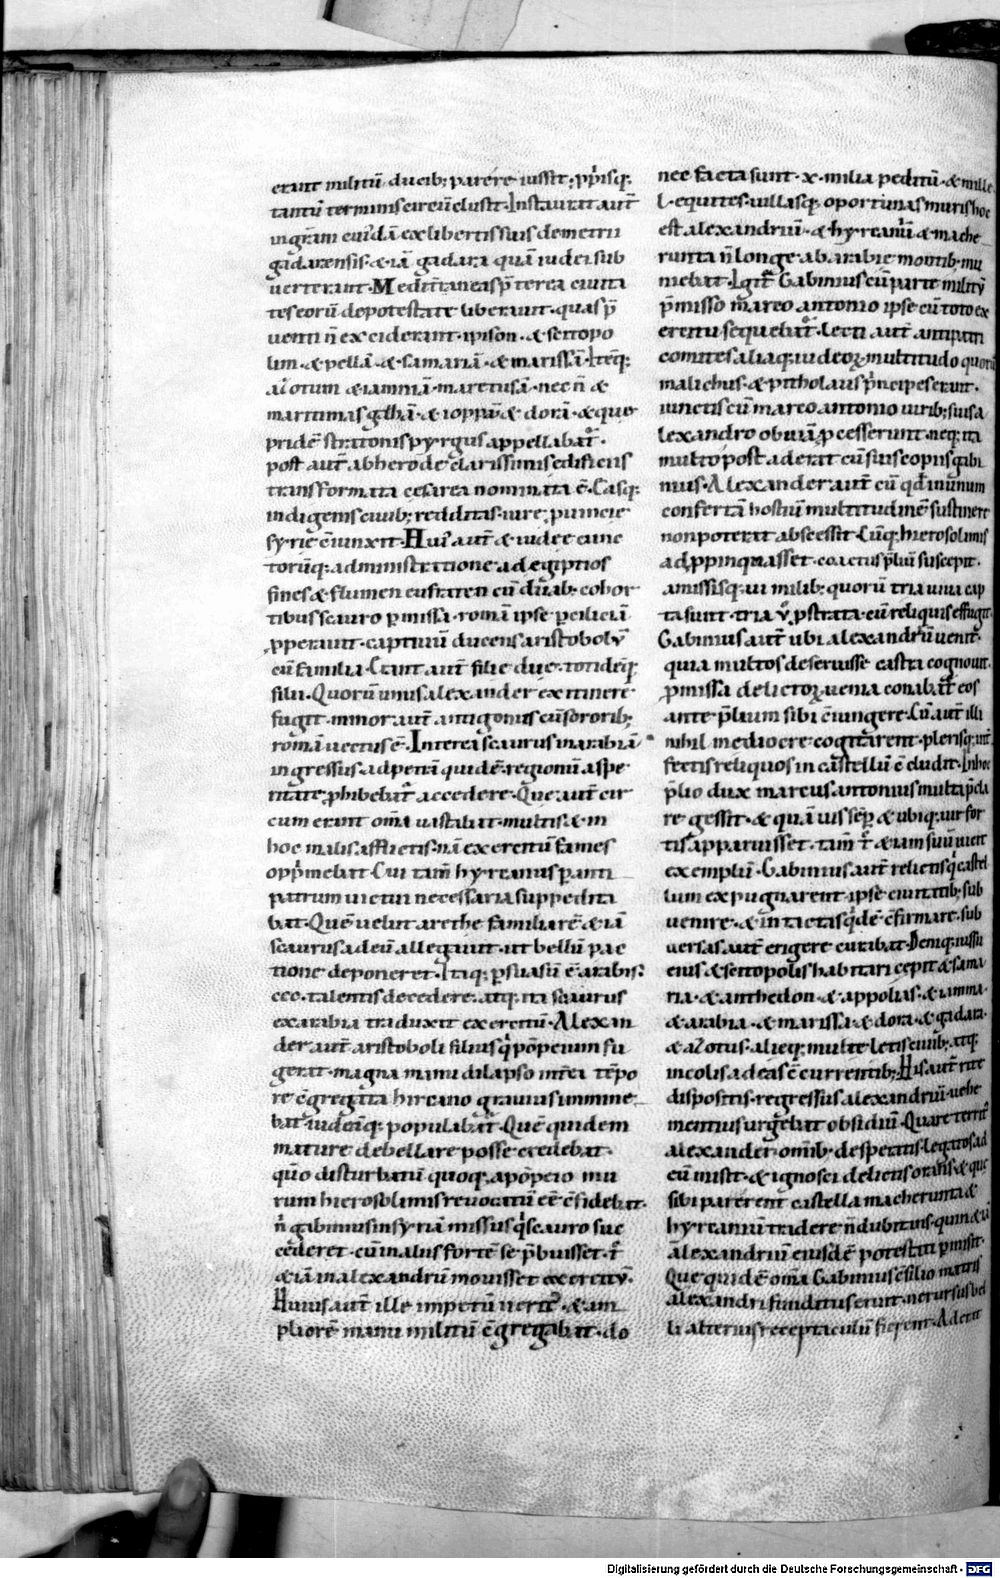 erant militū ducib; parere iussit; ꝓpriisq;
tantū terminis eireū elusit. Instaurat aut̄
in gr̄am cuiꝰdā ex libertis suis demetrii
gadarensis. & iā gadara quā iudei sub
uerterant. Mediterraneas p̄terea ciuita
tes eorū de potestate liberauit. quas p̄
uenti n̄ exciderant. ipison. & scitopo
lim. & pellā. & samariā. & marissā. Itēq;
azotum & iamniā. maretusā. nec n̄ &
maritimas gazā. & ioppā. & dorā. & quę
pridē stratonis pyrgus appellabat̄.
post aut̄ ab herode clarissimis edificiis
transformata cesarea nominata ē. Easq;
indigenis ciuib; redditas. iure; puincię
syrię c̄iunxit. Huiꝰ aut̄ & iudeę eunc
torūq; administratione ad egiptios
fines & flumen eufraten cū duab; cohor
tibus scauro ꝑmissa. romā ipse ꝑ ciliciā
ꝓperauit. captiuū ducens aristobolū
cū familia. Erant aut̄ filię duę. totidēq;
filii. Quorū unus alexander ex itinere
fugit. minor aut̄ antigonus cū sororib;
romā uectus ē. Interea scaurus in arabiā
ingressus. ad petrā quidē. regionū aspe
ritate; ꝓhibebat̄ accedere. Quę aut̄ cir
cum erant om̄a uastabat. multis. & in
hoc malis afflictis. nā exercitū fames
opp̄mebat. Cui tam̄ hyrcanus ꝑ anti
patrum uictui necessaria suppedita
bat. Quē uelut arethę familiarē & iā
scaurus ad eū allegauit. ut bellū pac
tione deponeret. Itaq; ꝑsuasū ē arabis;
ccc. talentis decedere. atq; ita scaurus
ex arabia traduxit exercitū. Alexan
der aut̄ aristoboli filius qͥ pōpeium fu
gerat. magna manu dilapso int̄ea tēpo
re c̄gregata hircano grauius immine
bat. iudeāq; populabat̄. Quē quidem
mature debellare posse credebat.
quō disturbatū quoq; a pōpeio mu
rum hierosolimis reuocatū eē c̄fidebat.
n̄ gabinius in syriā missus qͥ scauro suc
cederet. cū in aliis fortē se p̄buisset. t̄
& iā in alexandrū mouisset exercitū.
Huius aut̄ ille impetū ueritꝰ. & am
pliorē manū militū c̄gregabat. do
nec facta sunt. x. milia peditū. & mille
l. equites. uillasq; oportunas muris hoc
est alexandriū. & hyrcaniū & mache
runta n̄ longe ab arabię montib; mu
niebat. Igit̄ Gabinius cū parte militū
p̄misso marco antonio ipse cū toto ex
ercitu sequebat̄. Lecti aut̄ antipatri
comites aliaq; iudeoꝝ multitudo quorū
malichus. & pitholaus p̄ncipes erant.
iunctis cū marco antonio uirib; suis a
lexandro obuiā ꝓcesserunt. neq; ita
multo post aderat cū suis copiis gabi
nius. Alexander aut̄ cū qd̄ in unum
confertā hostiū multitudinē sustinere
non poterat abscessit. Cūq; hierosolimis
adꝓpinquasset. coactus p̄liū suscepit.
amissisq; ui milib; quorū tria uiua cap
ta sunt. tria u͛ ꝓstrata. cū reliquis effugit.
Gabinius aut̄ ubi alexandriū uenit.
quia multos deseruisse castra cognouit.
ꝓmissa delictoꝝ uenia conabat̄ eos
ante p̄lium sibi c̄iungere. Cū aut̄ illi
nihil mediocre cogitarent. plerisq; int̄
fectis reliquos in castellū c̄cludit. In hoc
p̄lio dux marcus antonius multa p̄cla
re gessit. & quā uis sēp̄ & ubiq; uir for
tis apparuisset. tam̄ t̄ & iam suū uicit
exemplū. Gabinius aut̄ relictis qͥ castel
lum expugnarent. ipse ciuitatib; sub
uenire. & intactas qͥdē c̄firmare. sub
uersas aut̄ erigere curabat. Deniq; iussu
eius & scitopolis habitari cepit & sama
ria. & anthedon. & appolias. & iamnia.
& arabia. & marissa. & dora. & gadara.
& azotus. alięq; multę lętis ciuib; atq;
incolis ad eas c̄currentib;. His aut̄ rite
dispositis. regressus alexandriū. uehe
mentius urgebat obsidiū. Quare territꝰ
alexander. omīb; desperatis. legatos ad
eū misit. & ignosci delictis orans. & quę
sibi parerent castella macherunta &
hyrcaniū tradere n̄ dubitauis. quin & ū
alexandriū eiusdē potestati ꝑmisit.
Quę quidē om̄a Gabinius c̄silio matris
alexandri funditus eruit. ne rursus bel
li alterius receptaculū fierent. Aderat
Digitalisierung gefördert durch die Deutsche Forschungsgemeinschaft - DFG